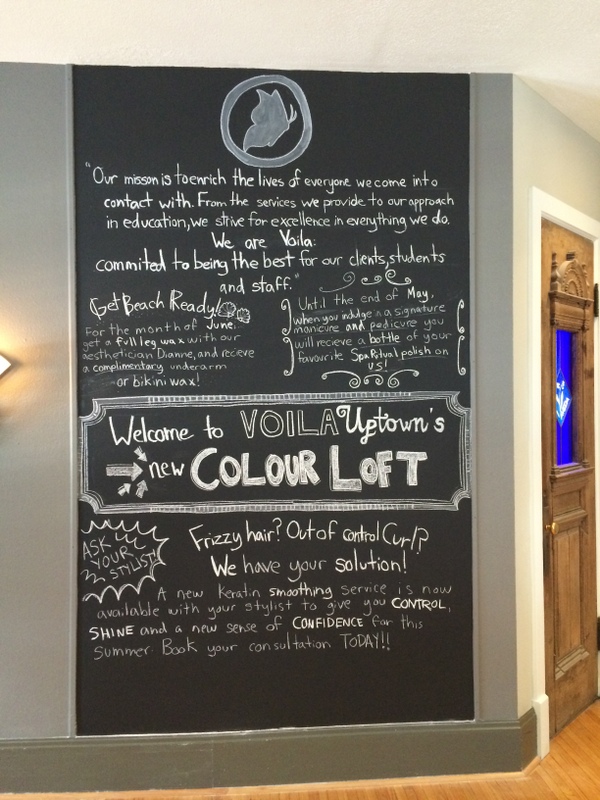 "Our misson is to enrich the lives of everyone we come into
contact with. From the services we provide to our approach
in education, we strive for excellence in everything we do.
We are Voila:
commited to being the best for our clients, students
and staff."
Get Beach Ready!
For the month of June,
get a full leg wax with our
aesthetician Dianne, and recieve
a complimentary underarm
or bikini wax!
Until the end of May,
when you indulge in a signature
manicure and pedicure you
will recieve a bottle of your
favourite SpaRitual polish on
us!
Welcome to VOILA Uptown's
new COLOUR LOFT
ASK
YOUR
STYLIST!
Frizzy hair? Out of control Curl?
We have your solution!
A new Keratin smoothing service is now
available with your stylist to give you CONTROL,
SHINE and a new sense of CONFIDENCE for this
summer. Book your consultation TODAY!!